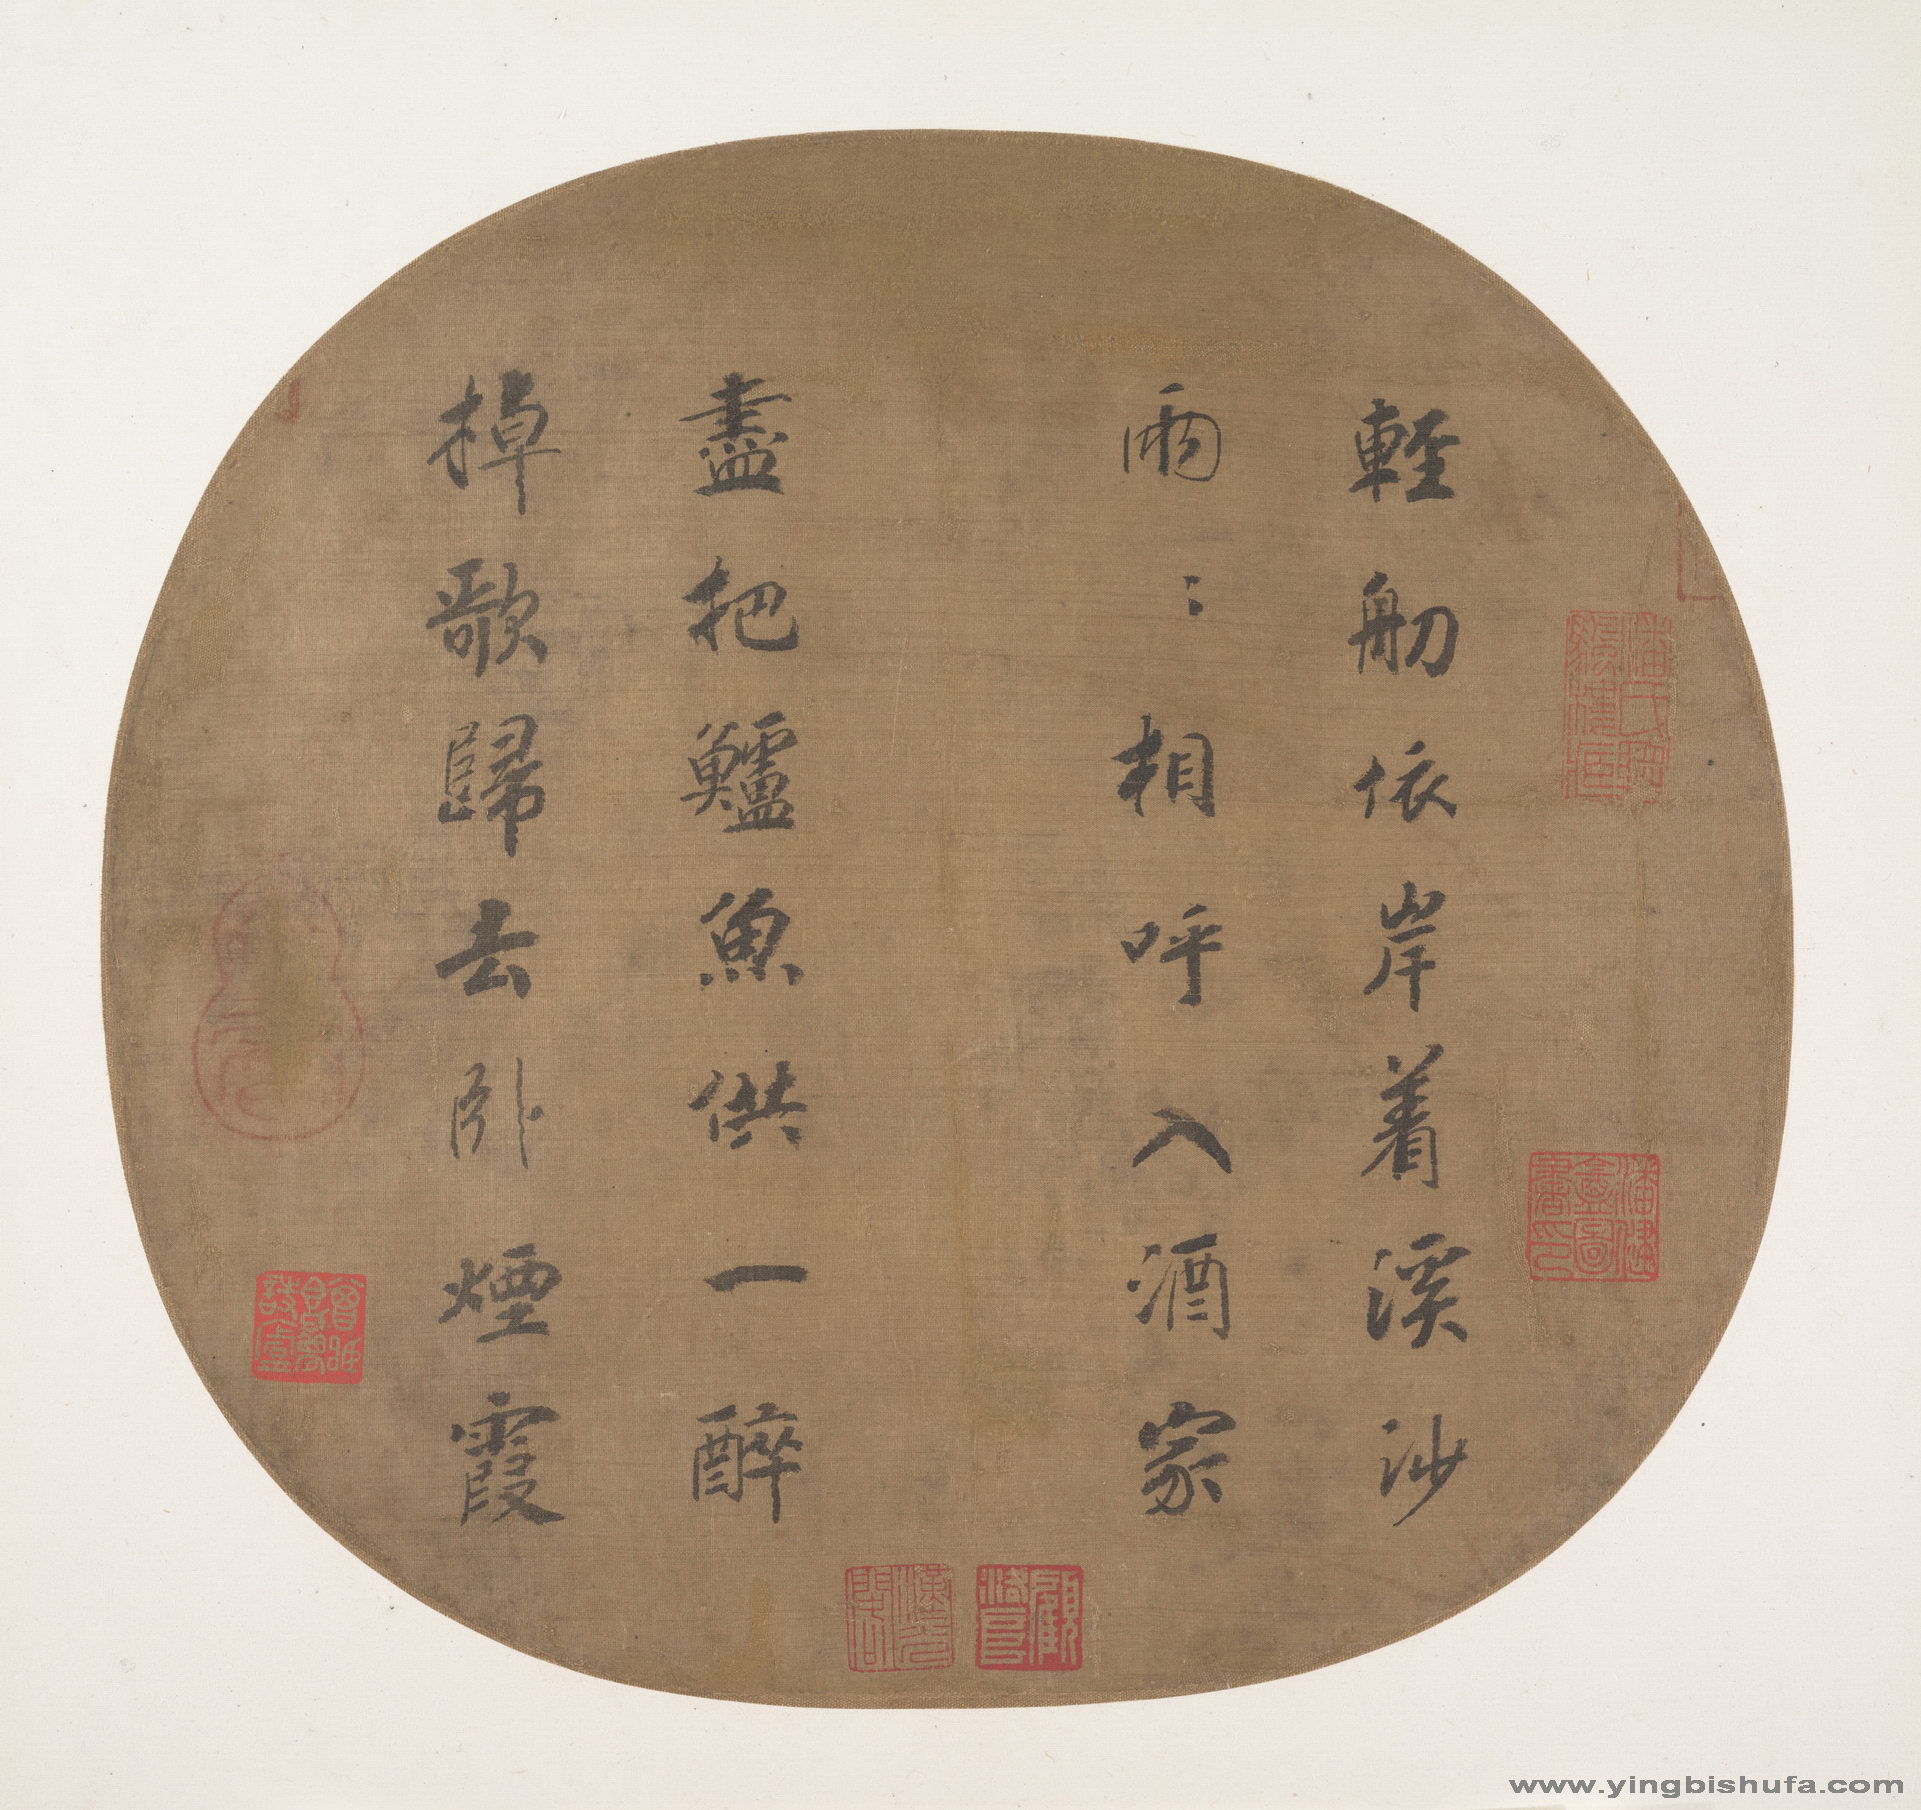 輕舠依岸着溪沙
兩〻相呼入酒家
盡把鱸魚供一醉
掉歌歸去卧煙霞
潘氏
顧
www.yingbishufa.com